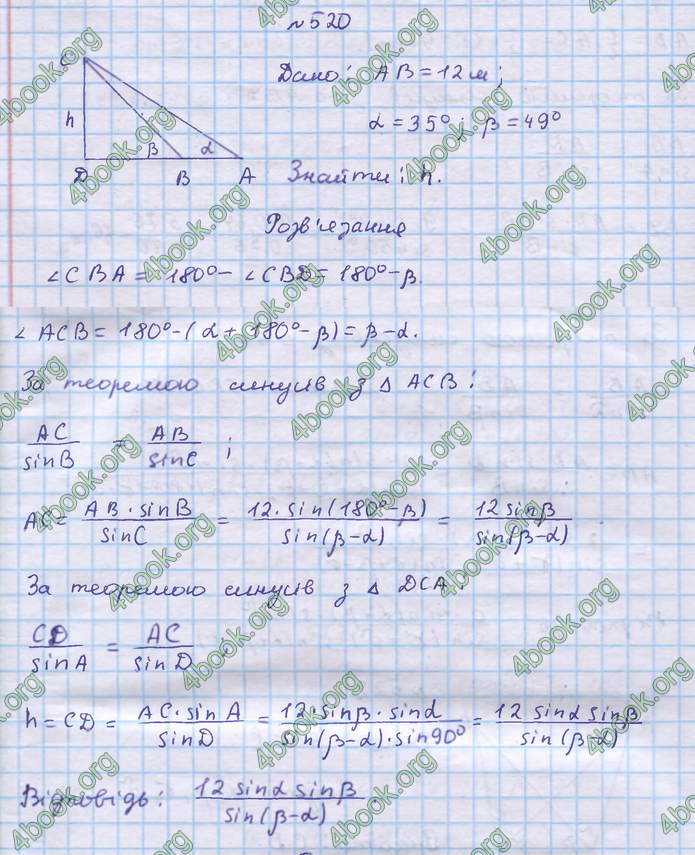 №520
Дано: AB = 12 м;
α = 35°; β = 49°
C
h
β
α
D
B
A
Знайти: h.
Розв'язання
∠CBA = 180° - ∠CBD = 180° - β.
∠ACB = 180° - (α + 180° - β) = β - α.
За теоремою синусів з △ ACB:
AC/sinB = AB/sinC;
AC = AB · sinB/sinC = 12 · sin(180° - β)/sin(β - α) = 12 sinβ/sin(β - α)
За теоремою синусів з △ DCA:
CD/sinA = AC/sinD;
h = CD = AC · sinA/sinD = 12 · sinβ · sinα/sin(β - α) · sin90° = 12 sinα sinβ/sin(β - α)
Відповідь: 12 sinα sinβ/sin(β - α).
4book.org